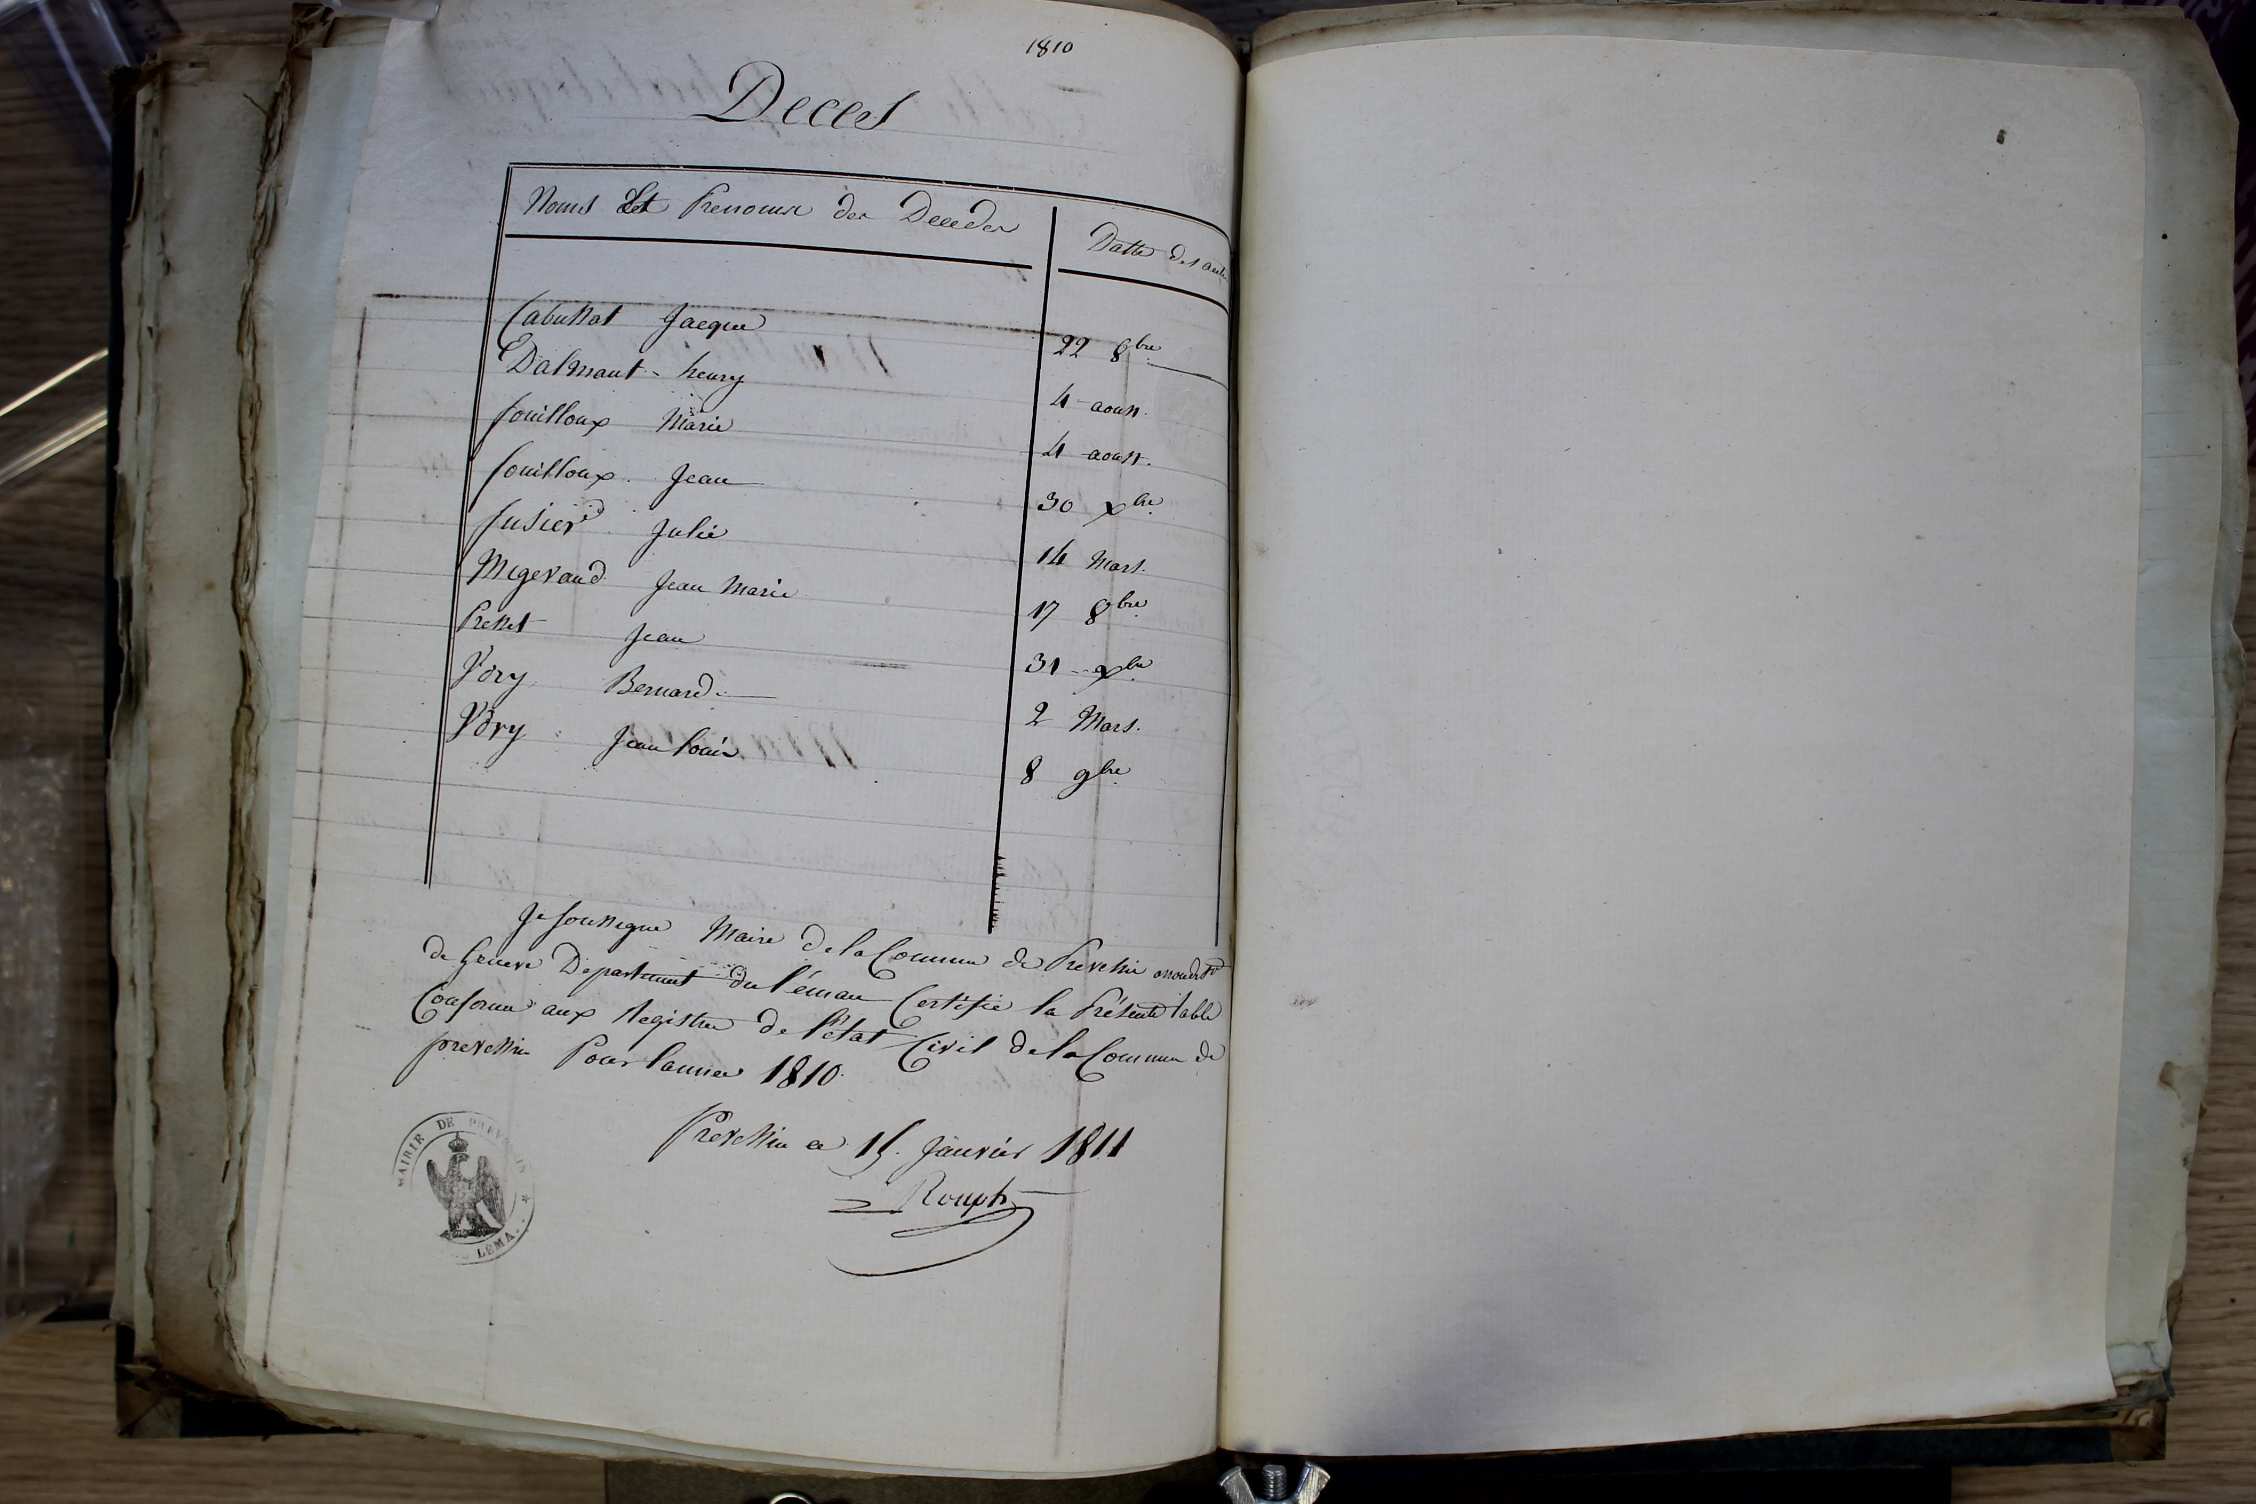 1810
Deces
Noms Et Prenoms des Decedes Datte des actes
Cabussat Jacque 22 8bre
Dalmant henry 4 aoust
fouilloux Marie 4 aoust.
fouilloux Jean 30 xbre
fusier Julie 14 Mars.
Megevand Jean Marie 17 8bre
Presset Jean 31 xbre
Vdry Bernard 2 Mars.
Vdry Jean Louis 8 9bre
Je soussigne Maire de la Commune de Prevessin arrondist
de Geneve Departement du Léman Certifie la Présente table
Conforme aux Registre de l'état Civil de la Commune de
prevessin Pour l'annee 1810.
Prevessin ce 15. Janvier 1811
Rouph
MAIRIE DE PREV IN
LEMA